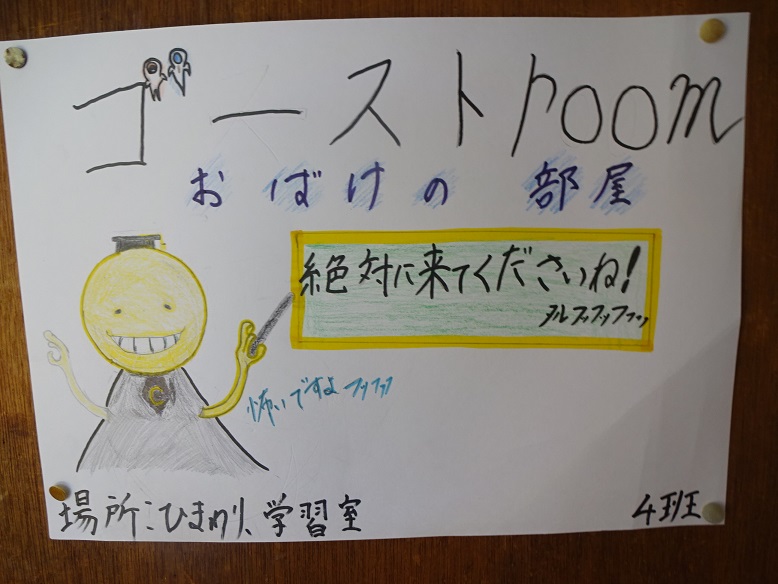 ゴーストroom
おばけの部屋
絶対に来てくださいね!
ヌルフフフフフッ
怖いですよフフフッ
場所:ひまわり、学習室
4班